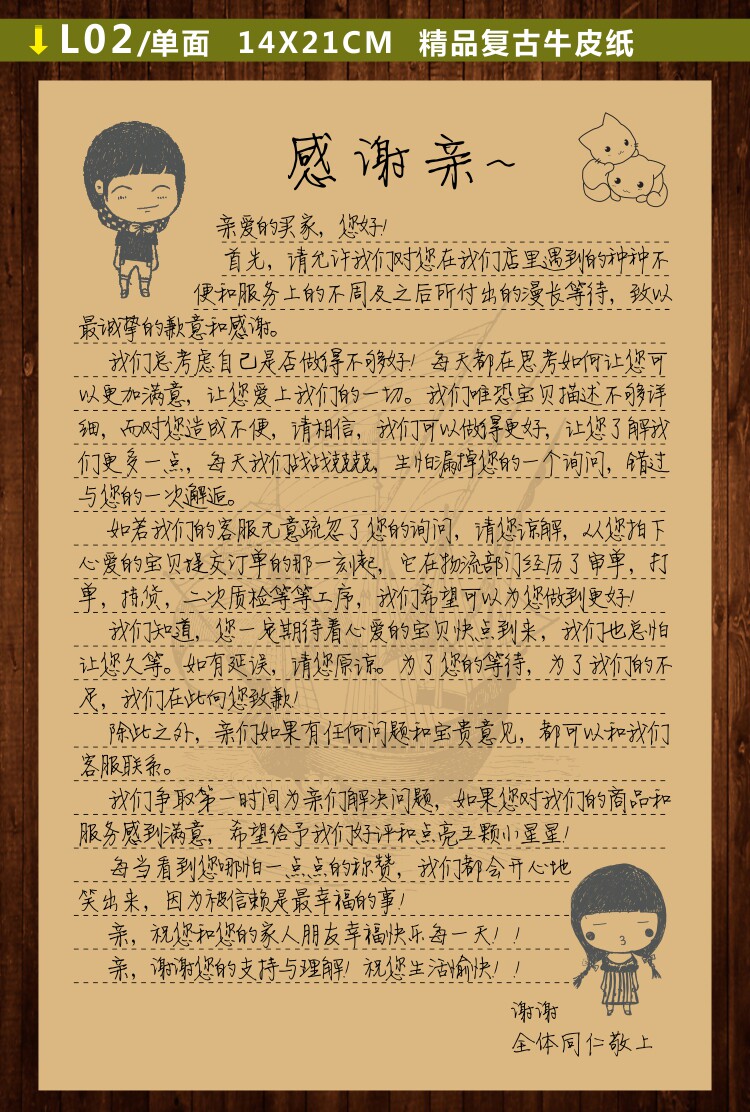 L02/单面 14X21CM 精品复古牛皮纸
感谢亲~
亲爱的买家，您好!
首先，请允许我们对您在我们店里遇到的种种不
便和服务上的不周及之后所付出的漫长等待，致以
最诚挚的歉意和感谢。
我们总考虑自己是否做得不够好! 每天都在思考如何让您可
以更加满意，让您爱上我们的一切。我们唯恐宝贝描述不够详
细，而对您造成不便，请相信，我们可以做得更好，让您了解我
们更多一点，每天我们战战兢兢，生怕漏掉您的一个询问，错过
与您的一次邂逅。
如若我们的客服无意疏忽了您的询问，请您谅解，从您拍下
心爱的宝贝提交订单的那一刻起，它在物流部门经历了审单，打
单，拣货，二次质检等等工序，我们希望可以为您做到更好!
我们知道，您一定期待着心爱的宝贝快点到来，我们也总怕
让您久等。如有延误，请您原谅。为了您的等待，为了我们的不
足，我们在此向您致歉!
除此之外，亲们如果有任何问题和宝贵意见，都可以和我们
客服联系。
我们争取第一时间为亲们解决问题，如果您对我们的商品和
服务感到满意，希望给予我们好评和点亮五颗小星星!
每当看到您哪怕一点点的称赞，我们都会开心地
笑出来，因为被信赖是最幸福的事!
亲，祝您和您的家人朋友幸福快乐每一天!!
亲，谢谢您的支持与理解! 祝您生活愉快!!
谢谢
全体同仁敬上